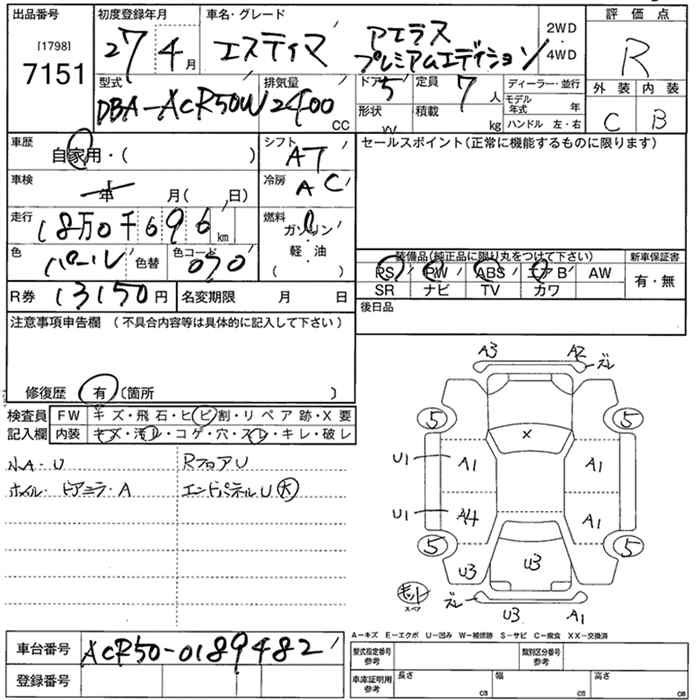 出品番号 初度登録年月 車名・グレード 評価点
[1798] 7151 27年4月 エスティマ アエラス プレミアムエディション 2WD 4WD R
型式 排気量 ドア 5 定員 7人 ディーラー・並行 外装 内装
DBA-ACR50W 2400 CC 形状 積載 kg モデル年式 年 ハンドル 左・右 C B
車歴 自家用・( ) シフト AT セールスポイント(正常に機能するものに限ります)
車検 年 月( 日) 冷房 AC
走行 18万0千696km 燃料 ガソリン
軽・油
( )
色 パール 色替 色コード 070 装備品(純正品に限り丸をつけて下さい) 新車保証書
PS PW ABS エアB AW 有・無
R券 13150円 名変期限 月 日 SR ナビ TV カワ
後日品
注意事項申告欄 (不具合内容等は具体的に記入して下さい)
修復歴 有 (箇所 )
検査員 FW キズ・飛石・ヒビ割・リペア跡・X要
記入欄 内装 キズ・汚れ・コゲ・穴・スレ・キレ・破レ
N.A・U RフロアU
ホイル・ドアミラ・A エンドパネルU大
A3 A2 ズレ
5 5
X
U1 A1 A1
U1 A4 A1
5 5
U3 U3
スペア ズレ
U3 A1
A-キズ E-エクボ U-凹み W-補修跡 S-サビ C-腐食 XX-交換済
車台番号 ACR50-0189482
型式指定番号 参考 類別区分番号 参考
登録番号 車庫証明用 参考 長さ cm 幅 cm 高さ cm